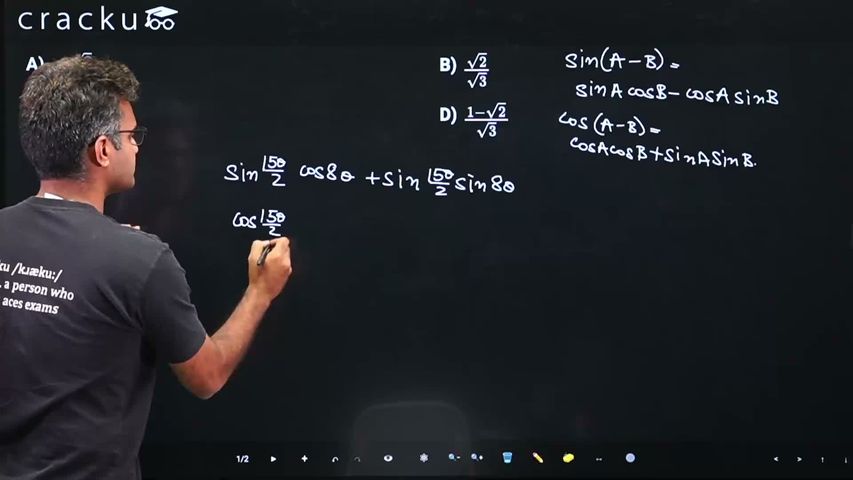 cracku
A)
B) √2/√3
D) 1-√2/√3
sin(A-B) =
sinA cosB - cosA sinB
cos(A-B) =
cosA cosB + sinA sinB.
sin 15θ/2 cos8θ + sin 15θ/2 sin 8θ
cos 15θ/2
ku /kɹæku:/
a person who
aces exams
1/2